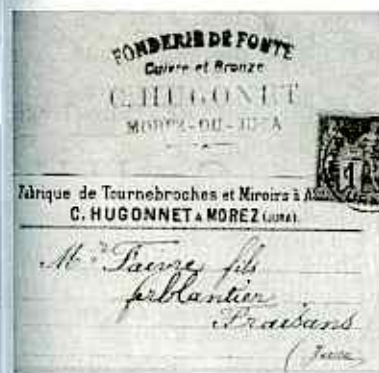 FONDERIE DE FONTE
Cuivre et Bronze
C. HUGONET
MOREZ-DU-JURA
1
Fabrique de Tournebroches et Miroirs à
C. HUGONNET A MOREZ (JURA)
Mr Faivre fils
ferblantier
Fraisans
(Jura)